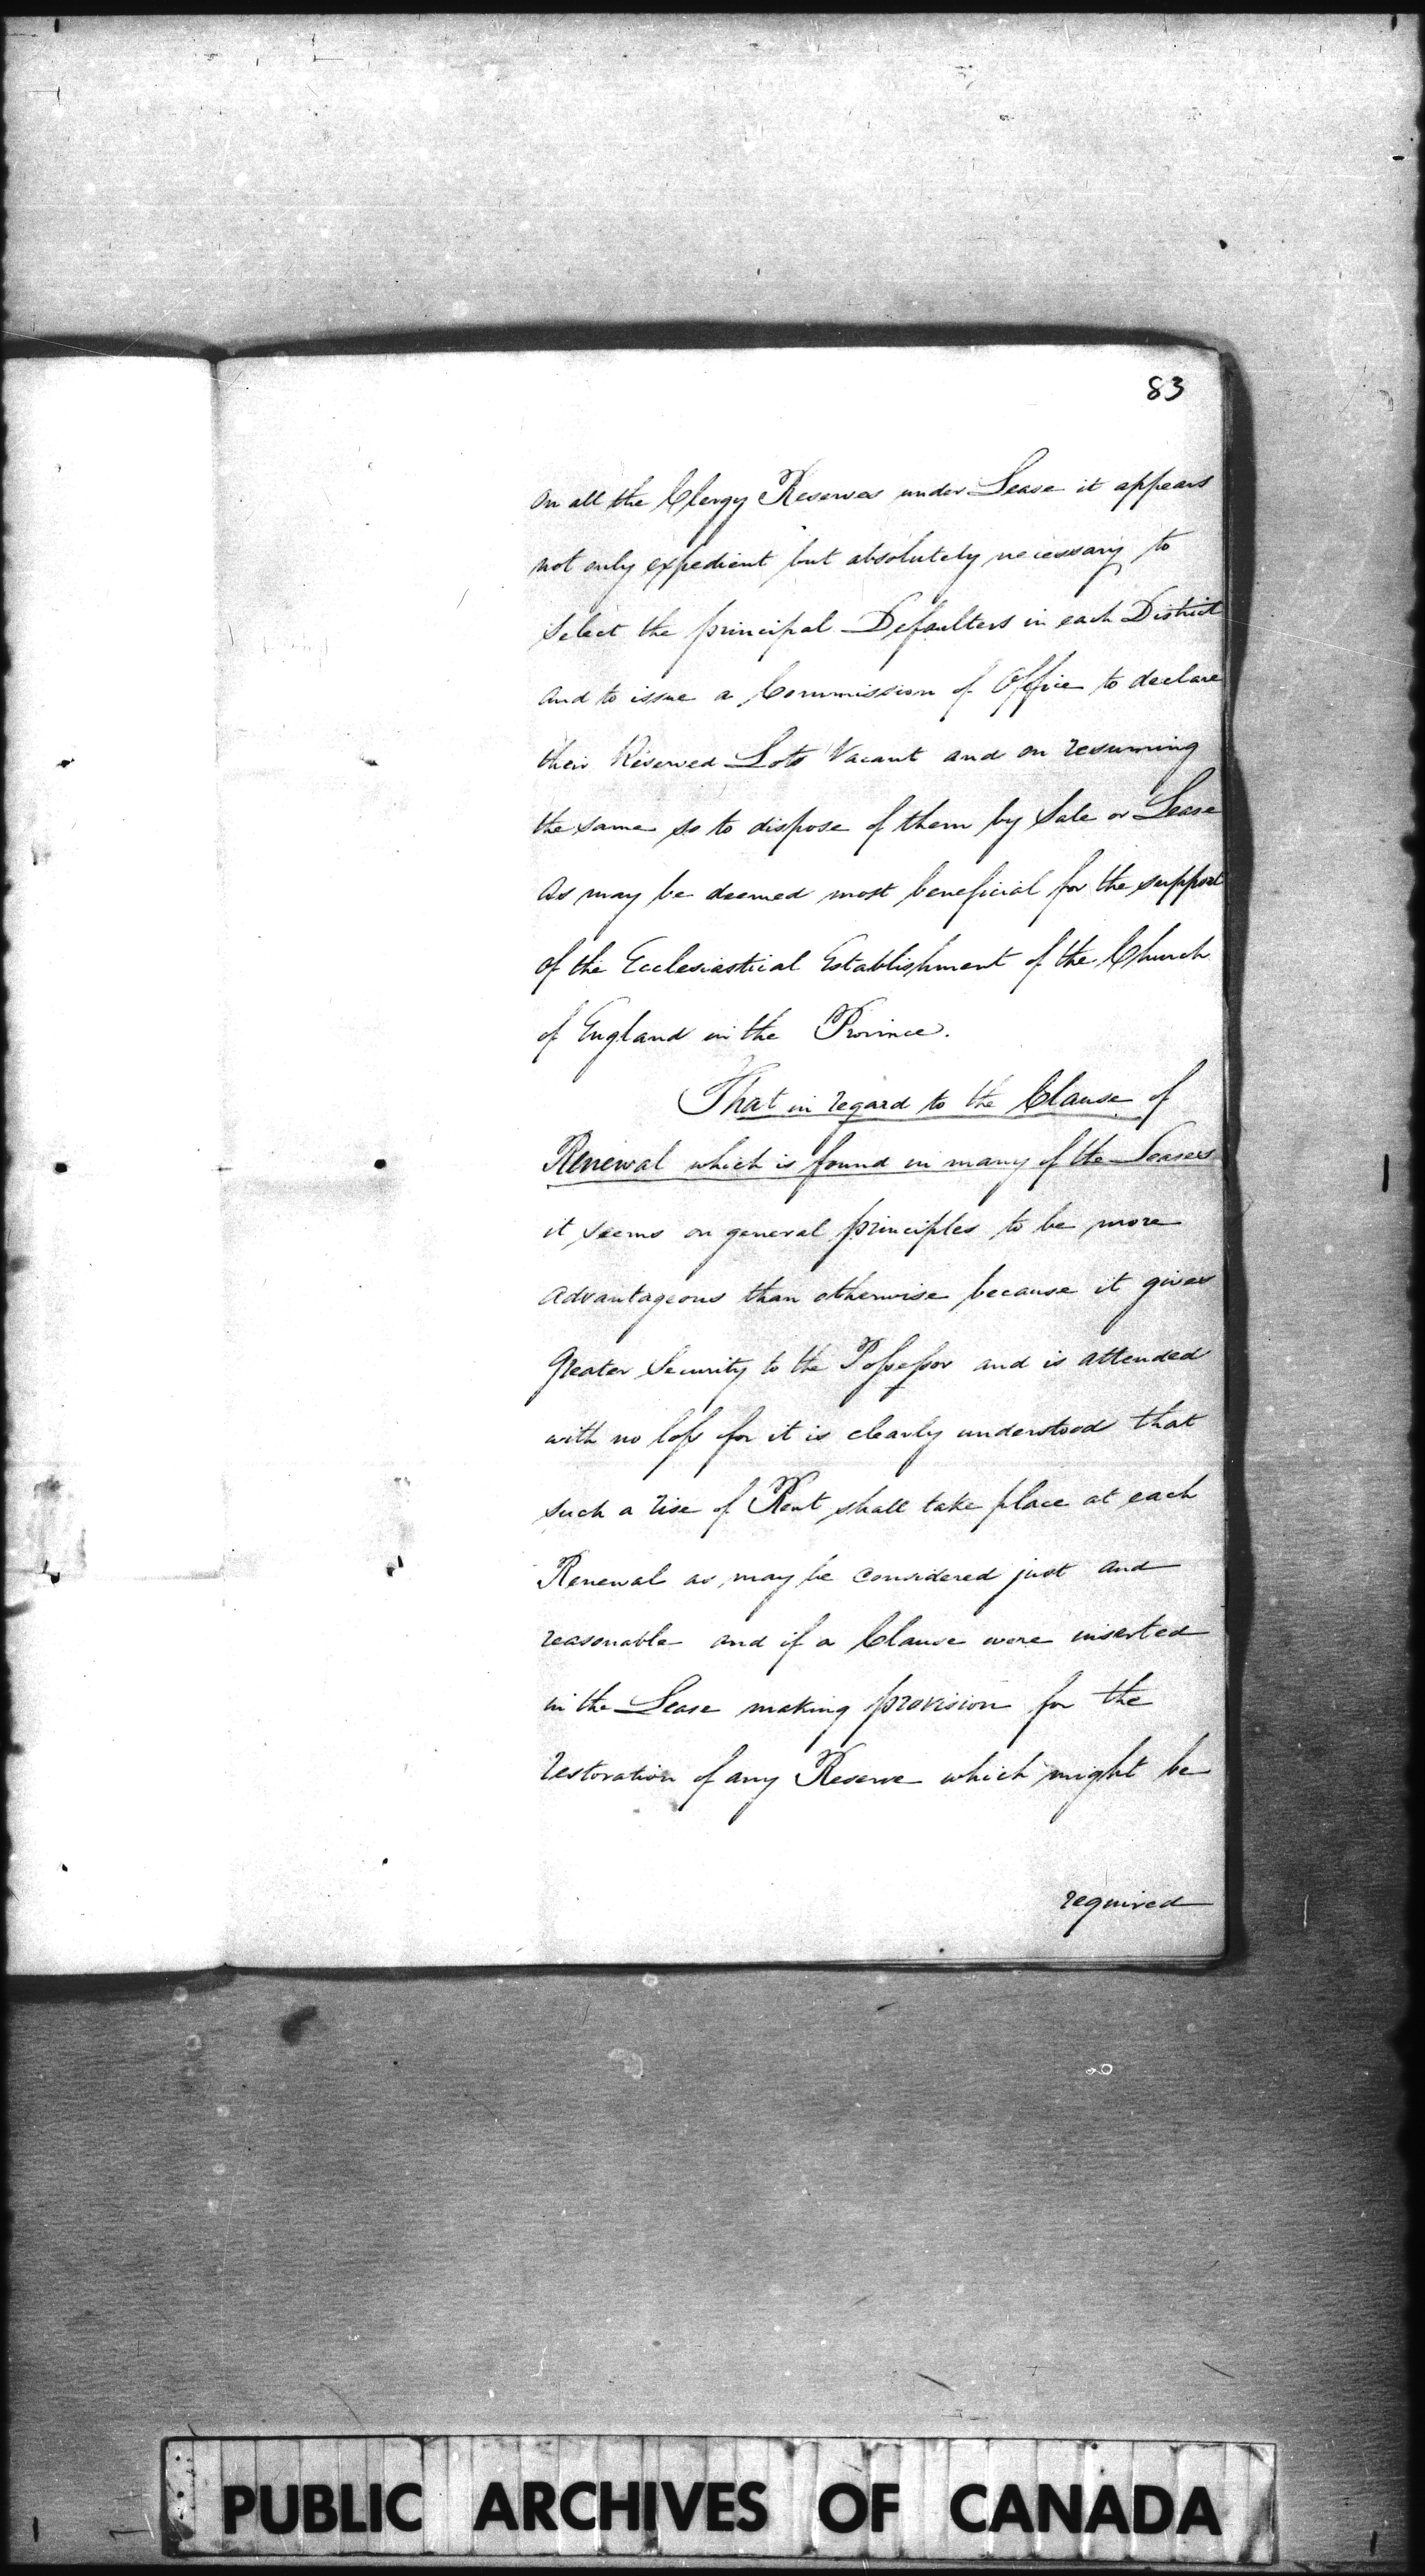 83
on all the Clergy Reserves under Lease it appears
not only expedient but absolutely necessary to
select the principal Defaulters in each District
and to issue a Commission of Office to declare
their Reserved Lots Vacant and on resuming
the same so to dispose of them by Sale or Lease
as may be deemed most beneficial for the support
of the Ecclesiastical Establishment of the Church
of England in the Province.
That in regard to the Clause of
Renewal which is found in many of the Leases
it seems on general principles to be more
advantageous than otherwise because it gives
Greater Security to the Possessor and is attended
with no loss for it is clearly understood that
such a rise of Rent shall take place at each
Renewal as may be considered just and
reasonable and if a Clause were inserted
in the Lease making provision for the
restoration of any Reserve which might be
required
PUBLIC ARCHIVES OF CANADA